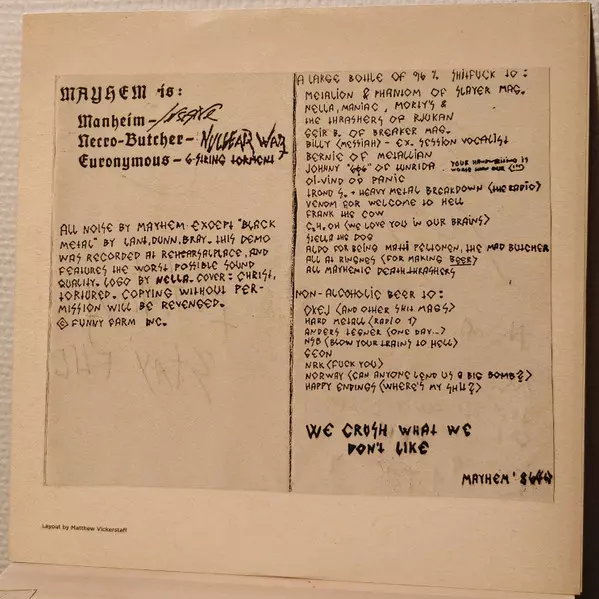 MAYHEM is:
Manheim-
Necro-Butcher- NUCLEAR WAR
Euronymous- 6-STRING TORMENT
ALL NOISE BY MAYHEM EXCEPT "BLACK
METAL" BY LANT, DUNN, BRAY. THIS DEMO
WAS RECORDED AT REHEARSALPLACE, AND
FEATURES THE WORST POSSIBLE SOUND
QUALITY. LOGO BY NELLA. COVER: CHRIST,
TORTURED. COPYING WITHOUT PER-
MISSION WILL BE REVENGED.
© FUNNY FARM INC.
A LARGE BOTTLE OF 96 % SHITFUCK TO:
METALION & PHANTOM OF SLAYER MAG.
NELLA, MANIAC, MORTY'S &
THE THRASHERS OF RJUKAN
GEIR B. OF BREAKER MAG.
BILLY (MESSIAH) - EX. SESSION VOCALIST
BERNIE OF METALLIAN
JOHNNY "666" OF YOUR HANDWRITING IS
WORSE THAN OUR
OI-VIND OF PANIC
TROND S. + HEAVY METAL BREAKDOWN (THE RADIO)
VENOM FOR WELCOME TO HELL
FRANK THE COW
(WE LOVE YOU IN OUR BRAINS)
STELLA THE DOG
ALDO FOR BEING MATTI PELTONEN, THE MAD BUTCHER
ALL AT RINGNES (FOR MAKING BEER)
ALL MAYHEMIC DEATHTHRASHERS
NON-ALCOHOLIC BEER TO:
OKEJ (AND OTHER SHIT MAGS)
HARD METALL (RADIO 1)
ANDERS TEGNER (ONE DAY...)
NSB (BLOW YOUR TRAINS TO HELL)
GEON
NRK (FUCK YOU)
NORWAY (CAN ANYONE LEND US A BIG BOMB?)
HAPPY ENDINGS (WHERE'S MY SHIT?)
WE CRUSH WHAT WE
DON'T LIKE
MAYHEM'
Layout by Matthew Vickerstaff